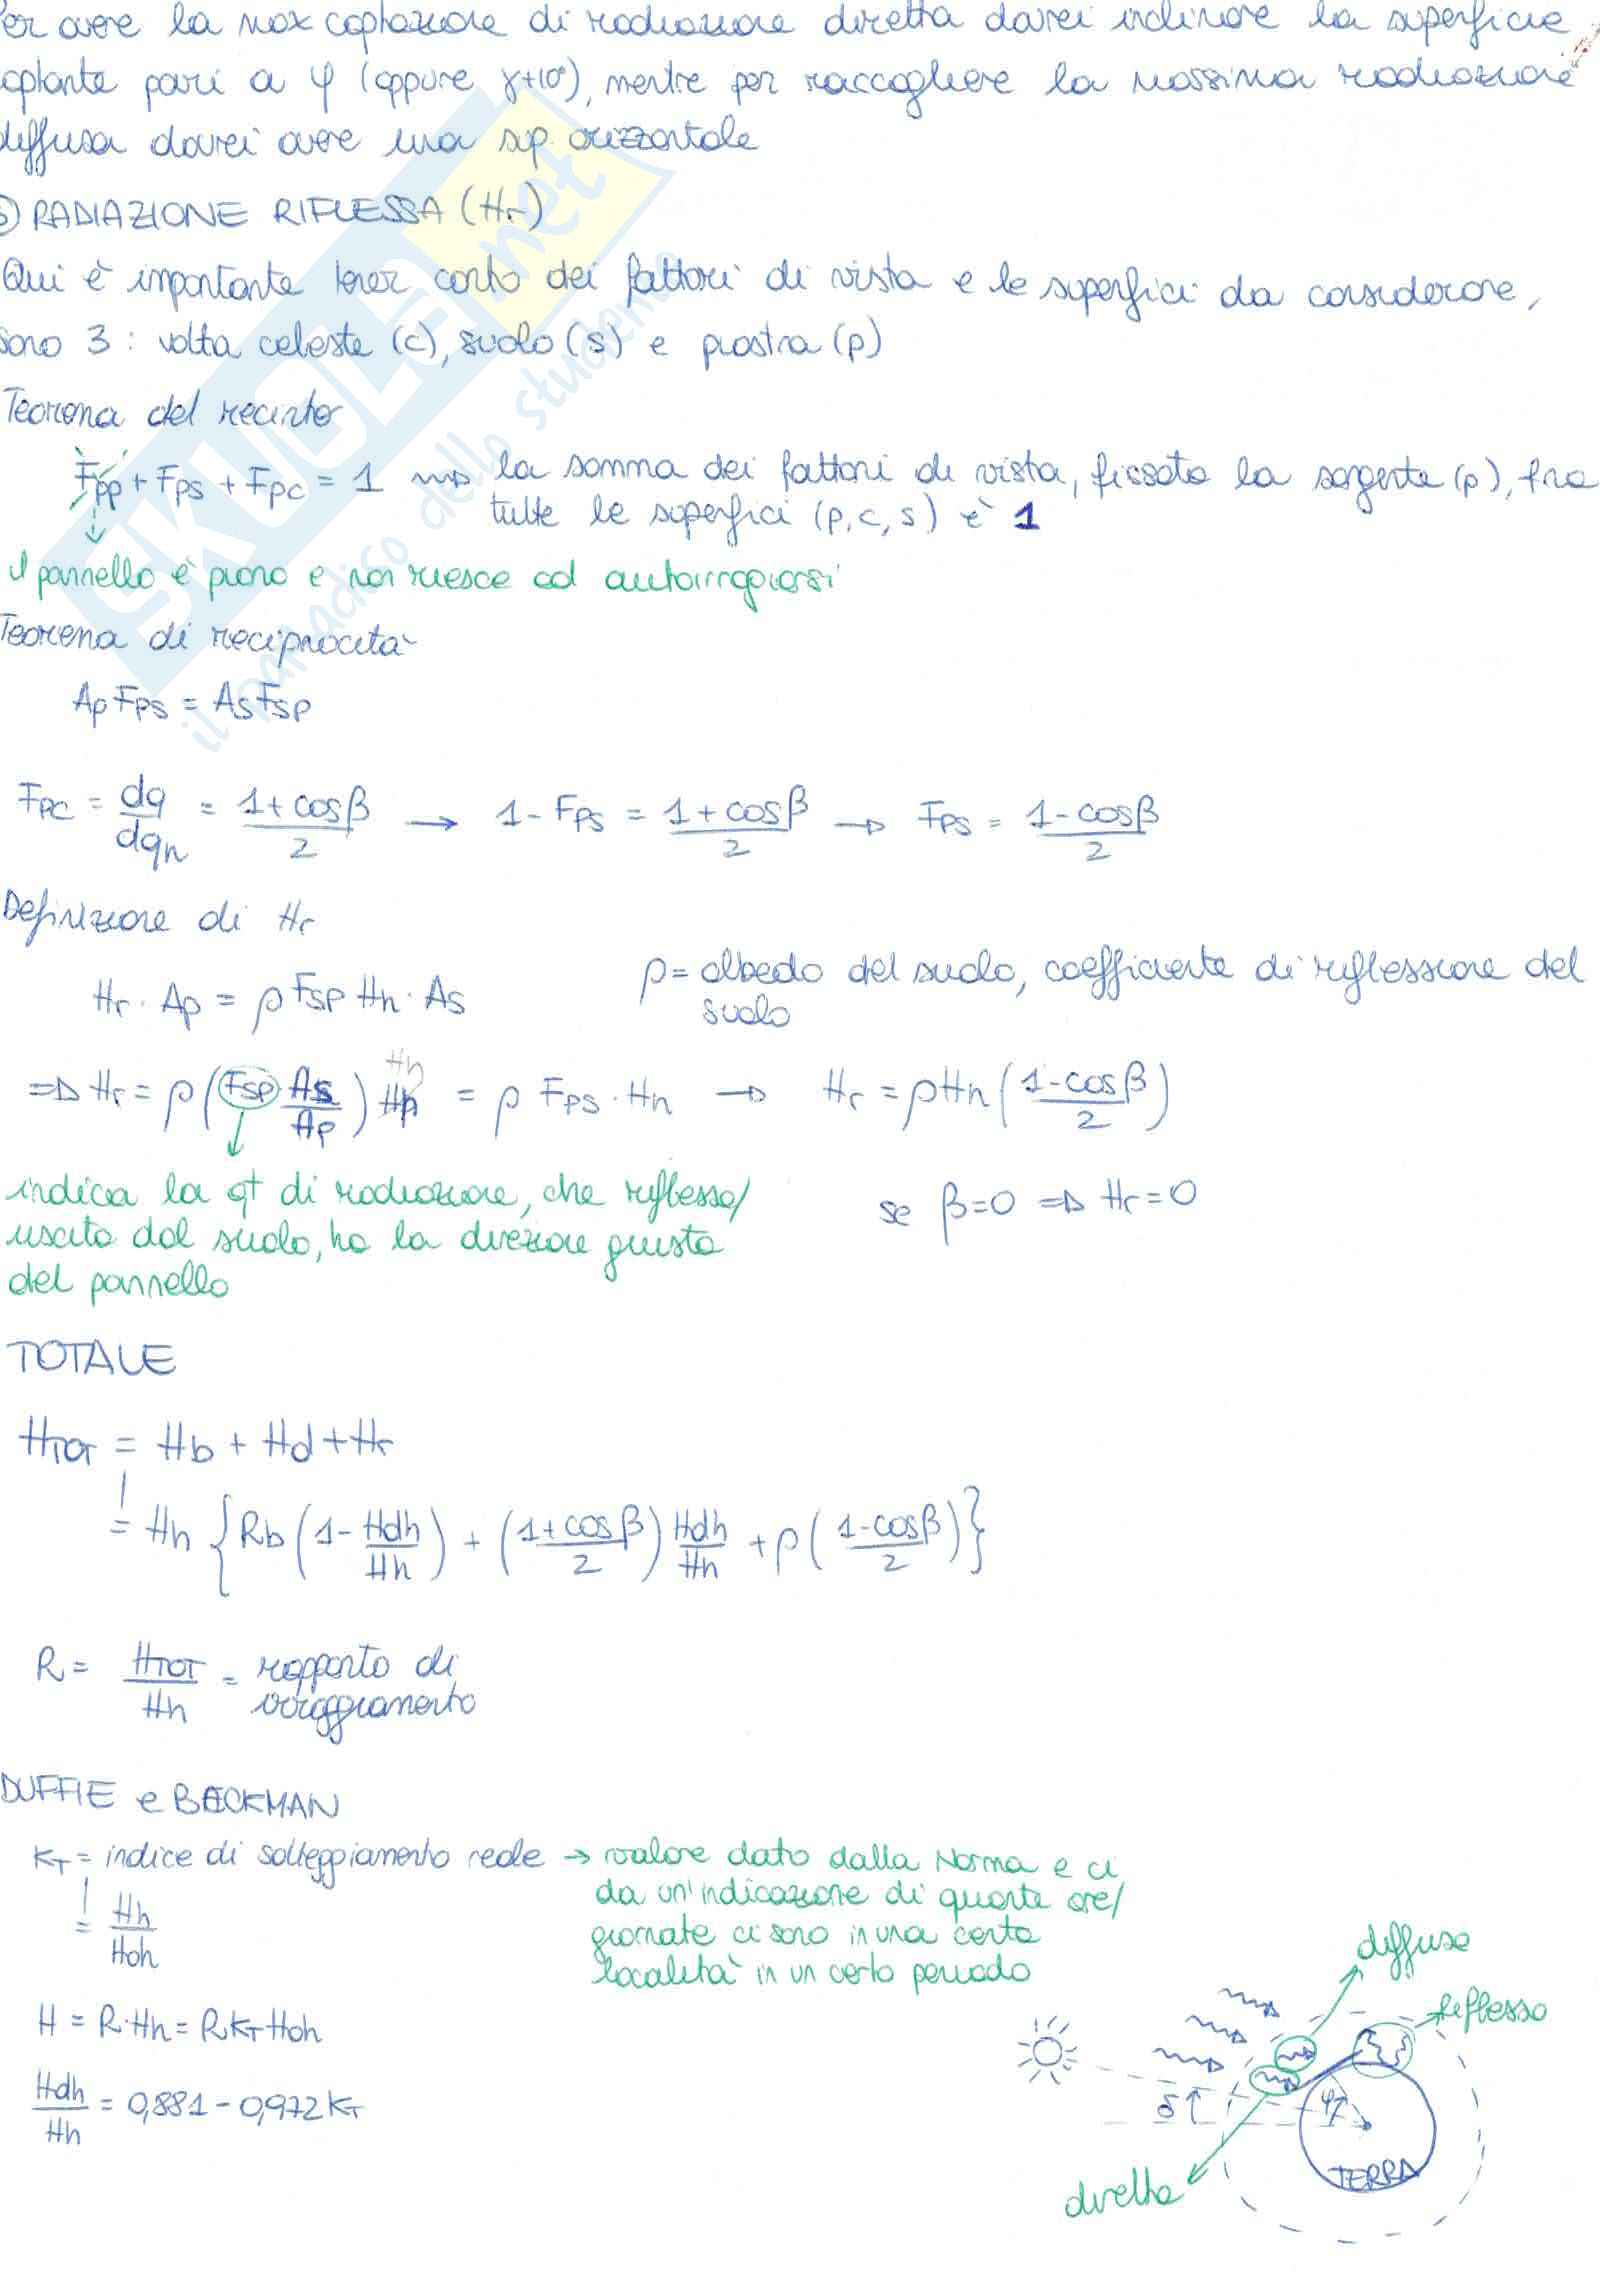 er avere la max captazione di radiazione diretta dovrei inclinare la superficie
aptante pari a φ (oppure γ+10°), mentre per raccogliere la massima radiazione
diffusa dovrei avere una sup. orizzontale
) RADIAZIONE RIFLESSA (Hr)
Qui è importante tener conto dei fattori di vista e le superfici da considerare,
sono 3: volta celeste (c), suolo (s) e piastra (p)
Teorema del recinto
Fpp + Fps + Fpc = 1 ⇝ la somma dei fattori di vista, fissata la sorgente (p), fra
tutte le superfici (p, c, s) è 1
il pannello è piano e non riesce ad autoirragiarsi
Teorema di reciprocità
Ap Fps = As Fsp
Fpc = dq/dqh = (1+cosβ)/2 → 1 - Fps = (1+cosβ)/2 → Fps = (1-cosβ)/2
Definizione di Hr
Hr · Ap = ρ Fsp Hh · As
ρ = albedo del suolo, coefficiente di riflessione del
suolo
⇒ Hr = ρ (Fsp As/Ap) Hh = ρ Fps · Hh → Hr = ρHh ((1-cosβ)/2)
indica la qt di radiazione, che riflessa/
uscita dal suolo, ha la direzione giusta
del pannello
se β=0 ⇒ Hr=0
TOTALE
HTOT = Hb + Hd + Hr
= Hh {Rb (1 - Hdh/Hh) + ((1+cosβ)/2) Hdh/Hh + ρ ((1-cosβ)/2)}
R = HTOT/Hh = rapporto di
irraggiamento
DUFFIE e BECKMAN
KT = indice di soleggiamento reale → valore dato dalla Norma e ci
da un'indicazione di quante ore/
giornate ci sono in una certa
località in un certo periodo
= Hh/Hoh
H = R·Hh = R KT Hoh
Hdh/Hh = 0,881 - 0,972 KT
diffusa
riflessa
δ
φ
TERRA
diretta
SKUOLA.net
il paradiso dello studente